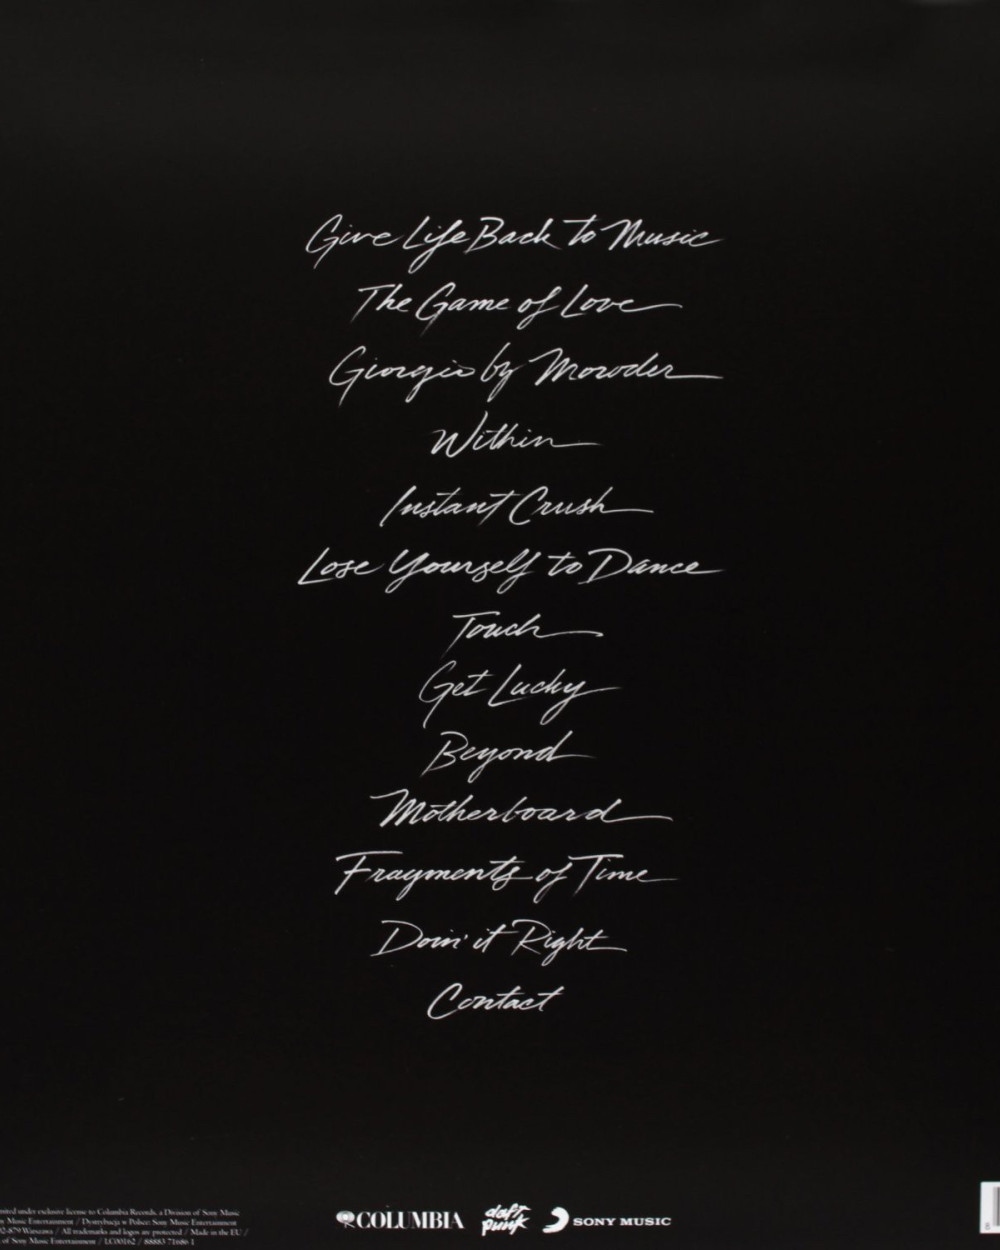 Give Life Back to Music
The Game of Love
Giorgio by Moroder
Within
Instant Crush
Lose Yourself to Dance
Touch
Get Lucky
Beyond
Motherboard
Fragments of Time
Doin' it Right
Contact
under exclusive license to Columbia Records, a Division of Sony Music
Music Entertainment / Dystrybucja w Polsce: Sony Music Entertainment
Warszawa / All trademarks and logos are protected / Made in the EU /
of Sony Music Entertainment / LC00162 / 88883 71686 1
COLUMBIA
daft
punk
SONY MUSIC